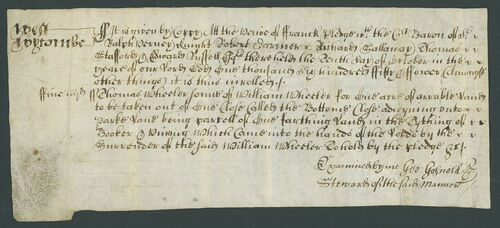 West
Wycombe
It is given by Coppy Att the veiwe of ffranck Pledge wth the Cort Baron of Sr
Ralph Verney Knight Robert Dormer Richard Gallaway Thomas
Stafford & Edward Russell Esqrs there holden the Sixth day of October in the
yeare of our Lord God one thousand six hundred fifty & ffower (Amongst
other things) it is thus inrolled /
ffine
Thomas Wheeler sonne of William Wheeler for one acre of arrable Land
to be taken out of one Close called the Bottome Close adioyning unto
Parke Lane being parcell of one farthing Land in the Tything of
Booker & Which Came into the hands of the Lords by the
Surrender of the said William Wheeler Tohold by the pledge &c /
Examined by me Geo Gosnold
Steward of the said Mannor